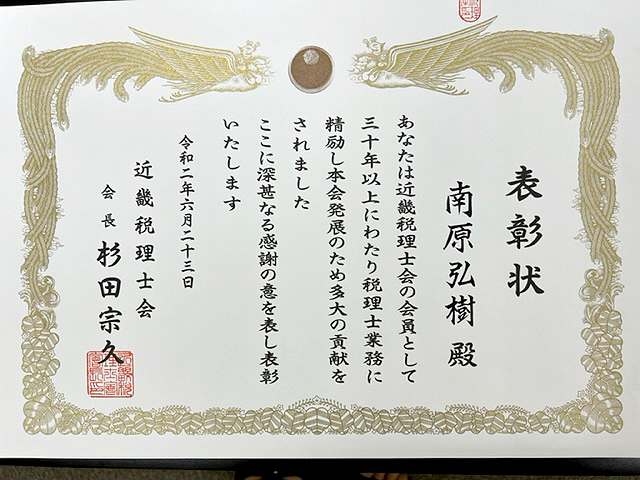 表彰状
南原弘樹 殿
あなたは近畿税理士会の会員として
三十年以上にわたり税理士業務に
精励し本会発展のため多大の貢献を
されました
ここに深甚なる感謝の意を表し表彰
いたします
令和二年六月二十三日
近畿税理士会
会長 杉田宗久